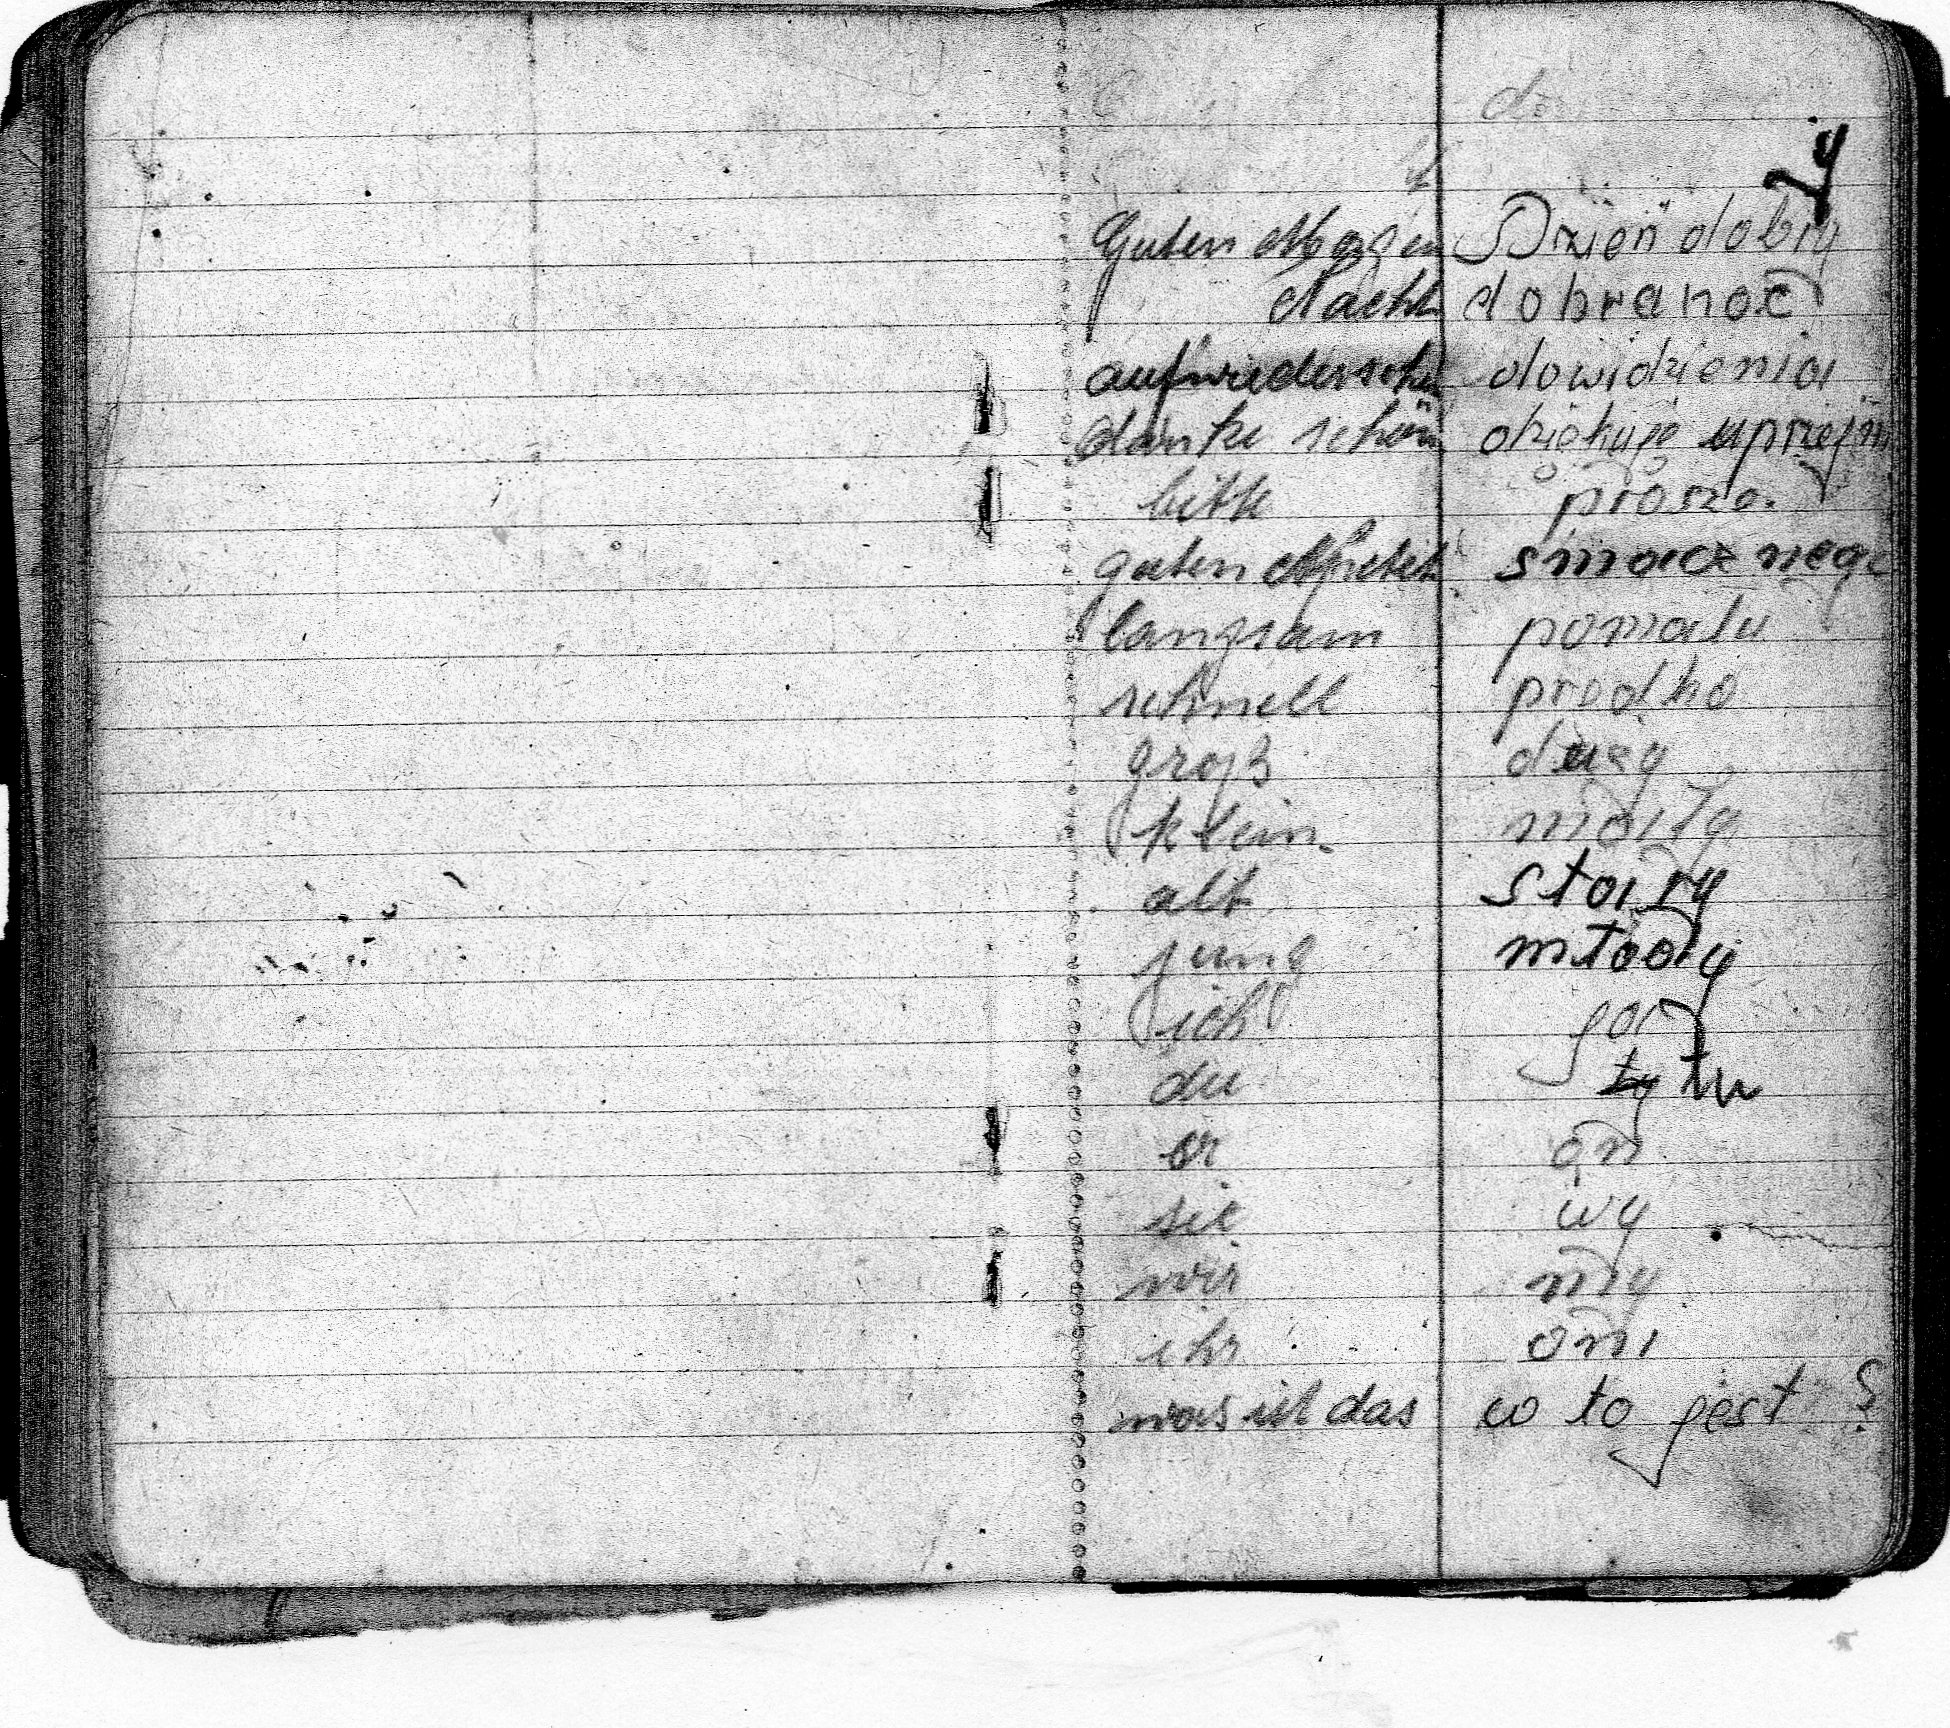 Guten Morgen Dzień dobry
Nacht dobranoc
aufwiedersehen dowidzenia
danke schön dziękuję uprzejm
bitte prosza.
guten Apetit smacznego
langsam pomalu
schnell prędko
groß
klein. mały
alt stary
jung młody
ich ja
du ty tu
er on
sie wy
wir my
ihr oni
was ist das co to jest ?